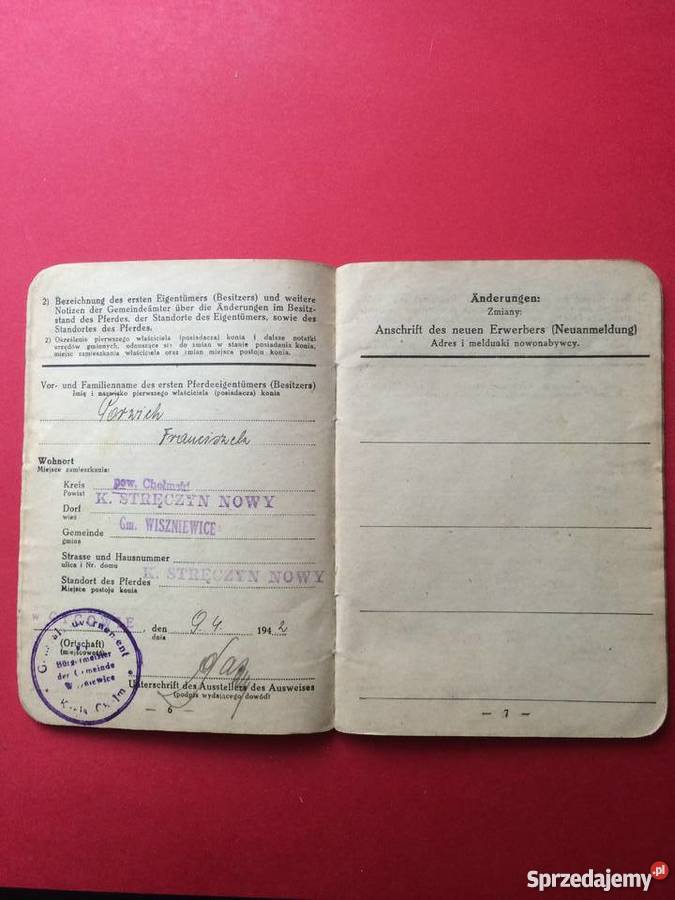 2) Bezeichnung des ersten Eigentümers (Besitzers) und weitere
Notizen der Gemeindeämter über die Änderungen im Besitz-
stand des Pferdes, der Standorte des Eigentümers, sowie des
Standortes des Pferdes.
2) Określenie pierwszego właściciela (posiadacza) konia i dalsze notatki
urzędów gminnych, odnoszące się do zmian w stanie posiadania konia,
miejsc zamieszkania właściciela oraz zmian miejsca postoju konia.
Vor- und Familienname des ersten Pferdeeigentümers (Besitzers)
Imię i nazwisko pierwszego właściciela (posiadacza) konia
Franciszek
Wohnort
Miejsce zamieszkania:
Kreis pow. Chełmski
Powiat
K. STRĘCZYN NOWY
Dorf
wieś
Gm. WISZNIEWICE
Gemeinde
gmina
Strasse und Hausnummer
ulica i Nr. domu
K. STRĘCZYN NOWY
Standort des Pferdes
Miejsce postoju konia
w CYCOWIE, den 9.4. 1942
dnia
(Ortschaft)
(miejscowość)
Generalgouvernement
Bürgermeister
der Gemeinde
Wiszniewice
Kreis Cholm
Unterschrift des Ausstellers des Ausweises
(podpis wydającego dowód)
— 6 —
Änderungen:
Zmiany:
Anschrift des neuen Erwerbers (Neuanmeldung)
Adres i meldunki nowonabywcy.
— 7 —
Sprzedajemy.pl